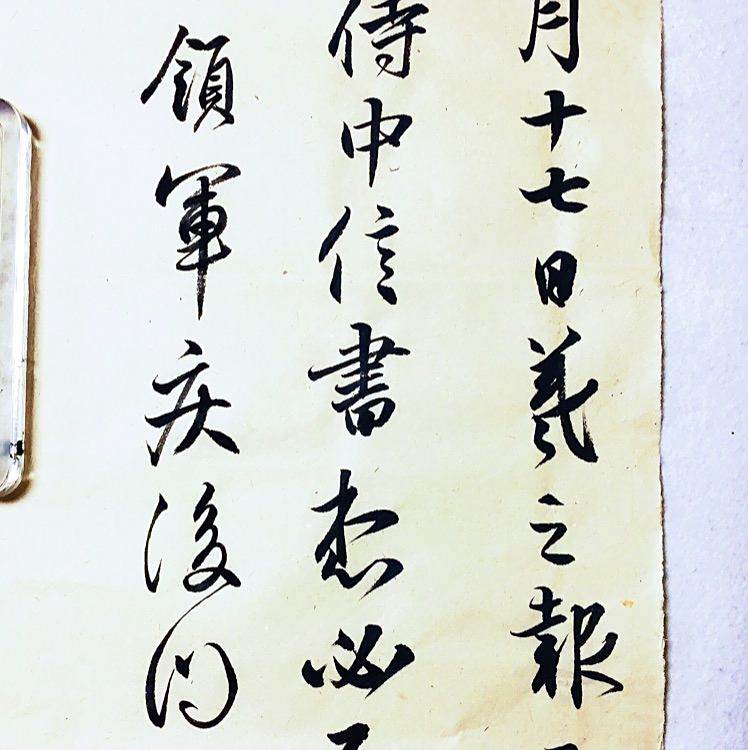 月十七日羲之報
侍中信書想必
領軍疾後問